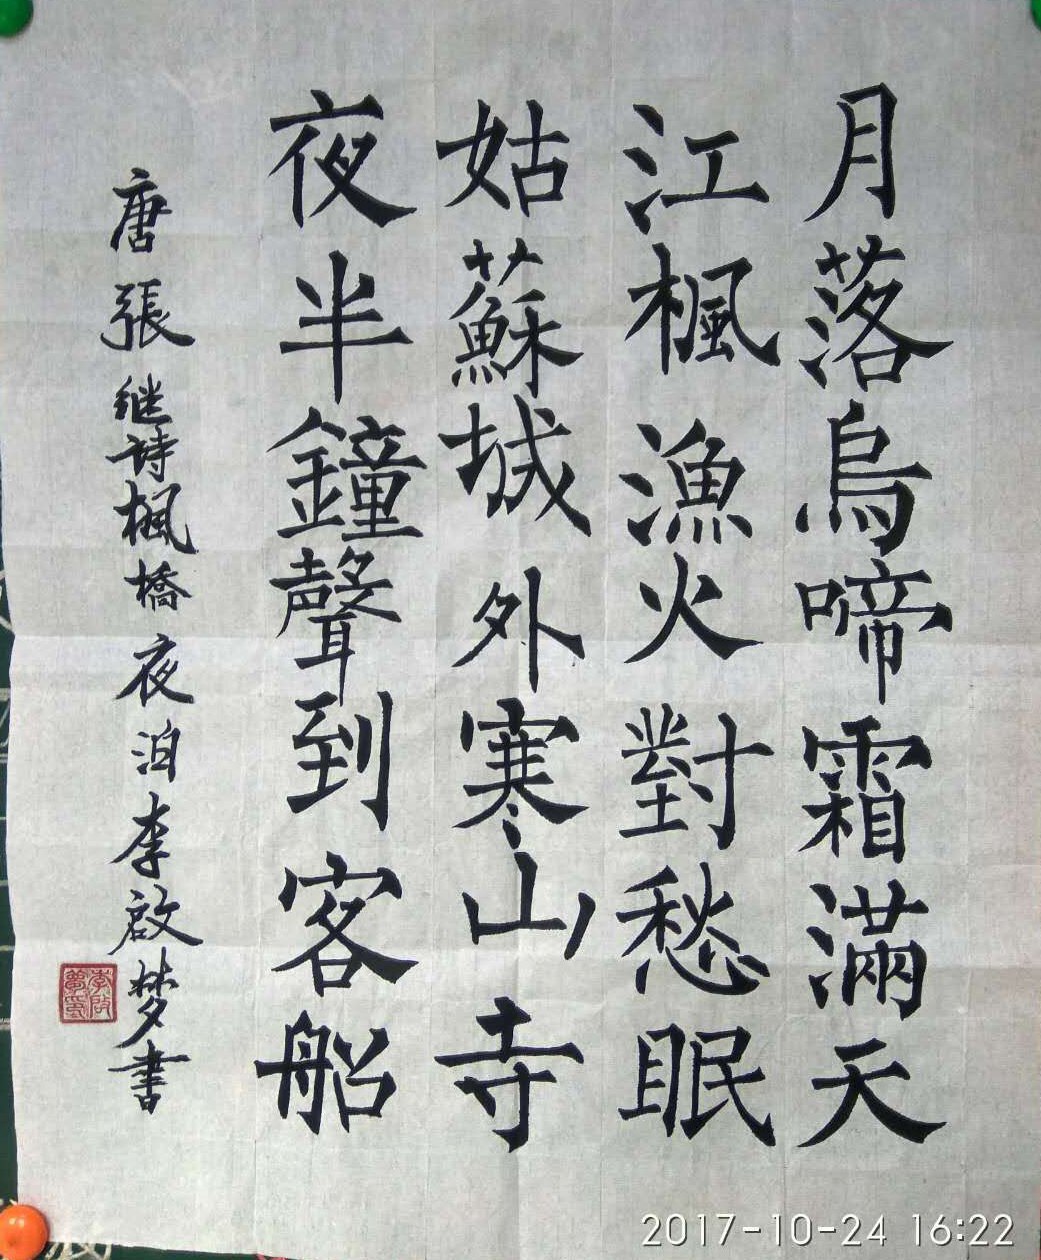 月落烏啼霜滿天
江楓漁火對愁眠
姑蘇城外寒山寺
夜半鐘聲到客船
唐張继詩楓橋夜泊李啟梦書
2017-10-24 16:22